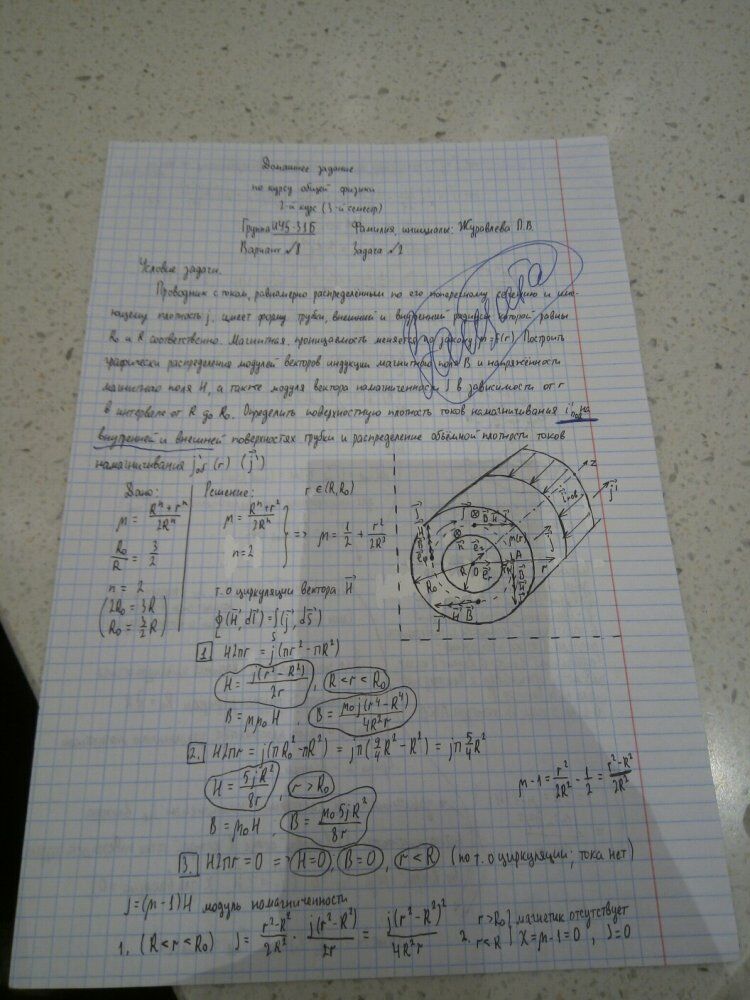 Домашнее задание
по курсу общей физики
2-й курс (3-й семестр)
Группа ИУ5-31Б Фамилия, инициалы: Журавлева П.В.
Вариант №8 Задача №2
Условие задачи.
Проводник с током, равномерно распределённым по его поперечному сечению и име-
ющему плотность j, имеет форму трубки, внешний и внутренний радиусы которой равны
R₀ и R соответственно. Магнитная проницаемость меняется по закону μ=f(r). Построить
графически распределения модулей векторов индукции магнитного поля B и напряжённости
магнитного поля H, а также модуля вектора намагниченности J в зависимости от r
в интервале от R до R₀. Определить поверхностную плотность токов намагничивания i'пов на
внутренней и внешней поверхностях трубки и распределение объёмной плотности токов
намагничивания j'об (r) (j')
Дано: Решение: r ∈ (R, R₀)
μ = (Rⁿ + rⁿ)/(2Rⁿ) μ = (Rⁿ + r²)/(2Rⁿ)
n=2 => μ = 1/2 + r²/(2R²)
R₀/R = 3/2
n = 2 т. о циркуляции вектора H
(2R₀ = 3R
R₀ = 3/2 R) ∮(H, dl) = ∫(j, dS)
1. H2πr = j(πr² - πR²)
H = j(r² - R²)/(2r), R < r < R₀
B = μμ₀H, B = μ₀j(r⁴ - R⁴)/(4R²r)
2. H2πr = j(πR₀² - πR²) = jπ(9/4 R² - R²) = jπ 5/4 R²
H = 5jR²/(8r), r > R₀
μ-1 = r²/(2R²) - 1/2 = (r² - R²)/(2R²)
B = μ₀H, B = μ₀5jR²/(8r)
3. H2πr = 0 => H=0, B=0, r < R (по т. о циркуляции; тока нет)
J = (μ-1)H модуль номагниченности
1. (R < r < R₀) J = (r² - R²)/(2R²) · j(r² - R²)/(2r) = j(r² - R²)²/(4R²r) 2. r > R₀ r < R } магнетик отсутствует
χ = μ-1 = 0, J = 0